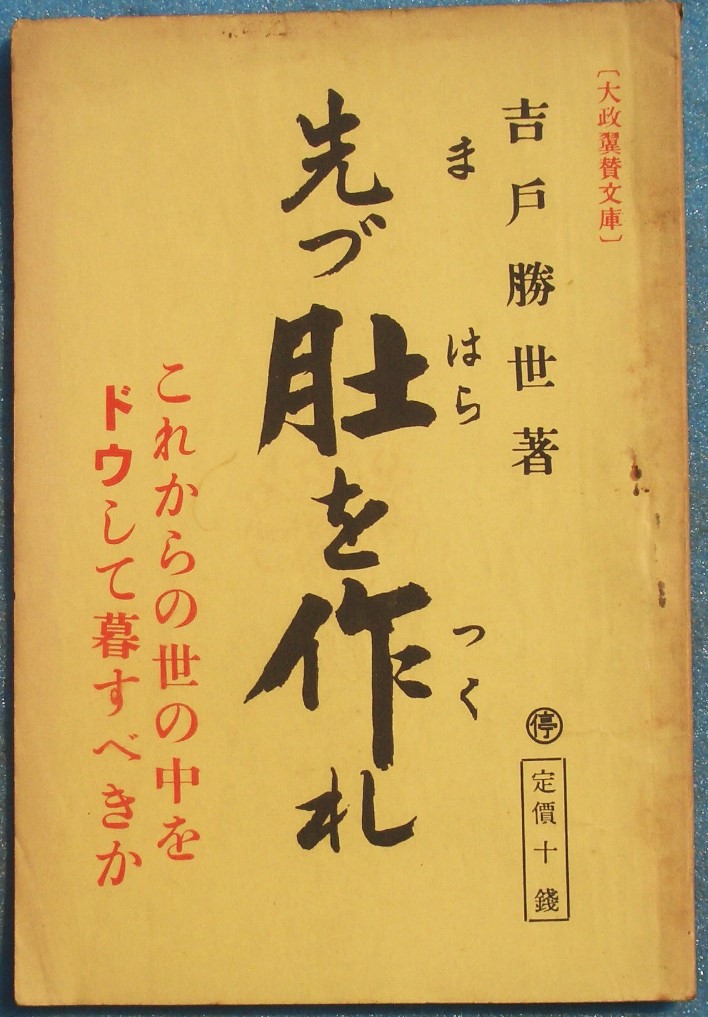 〔大政翼賛文庫〕
吉戸勝世著
停
定價十錢
ま はら つく
先づ肚を作れ
これからの世の中を
ドウして暮すべきか